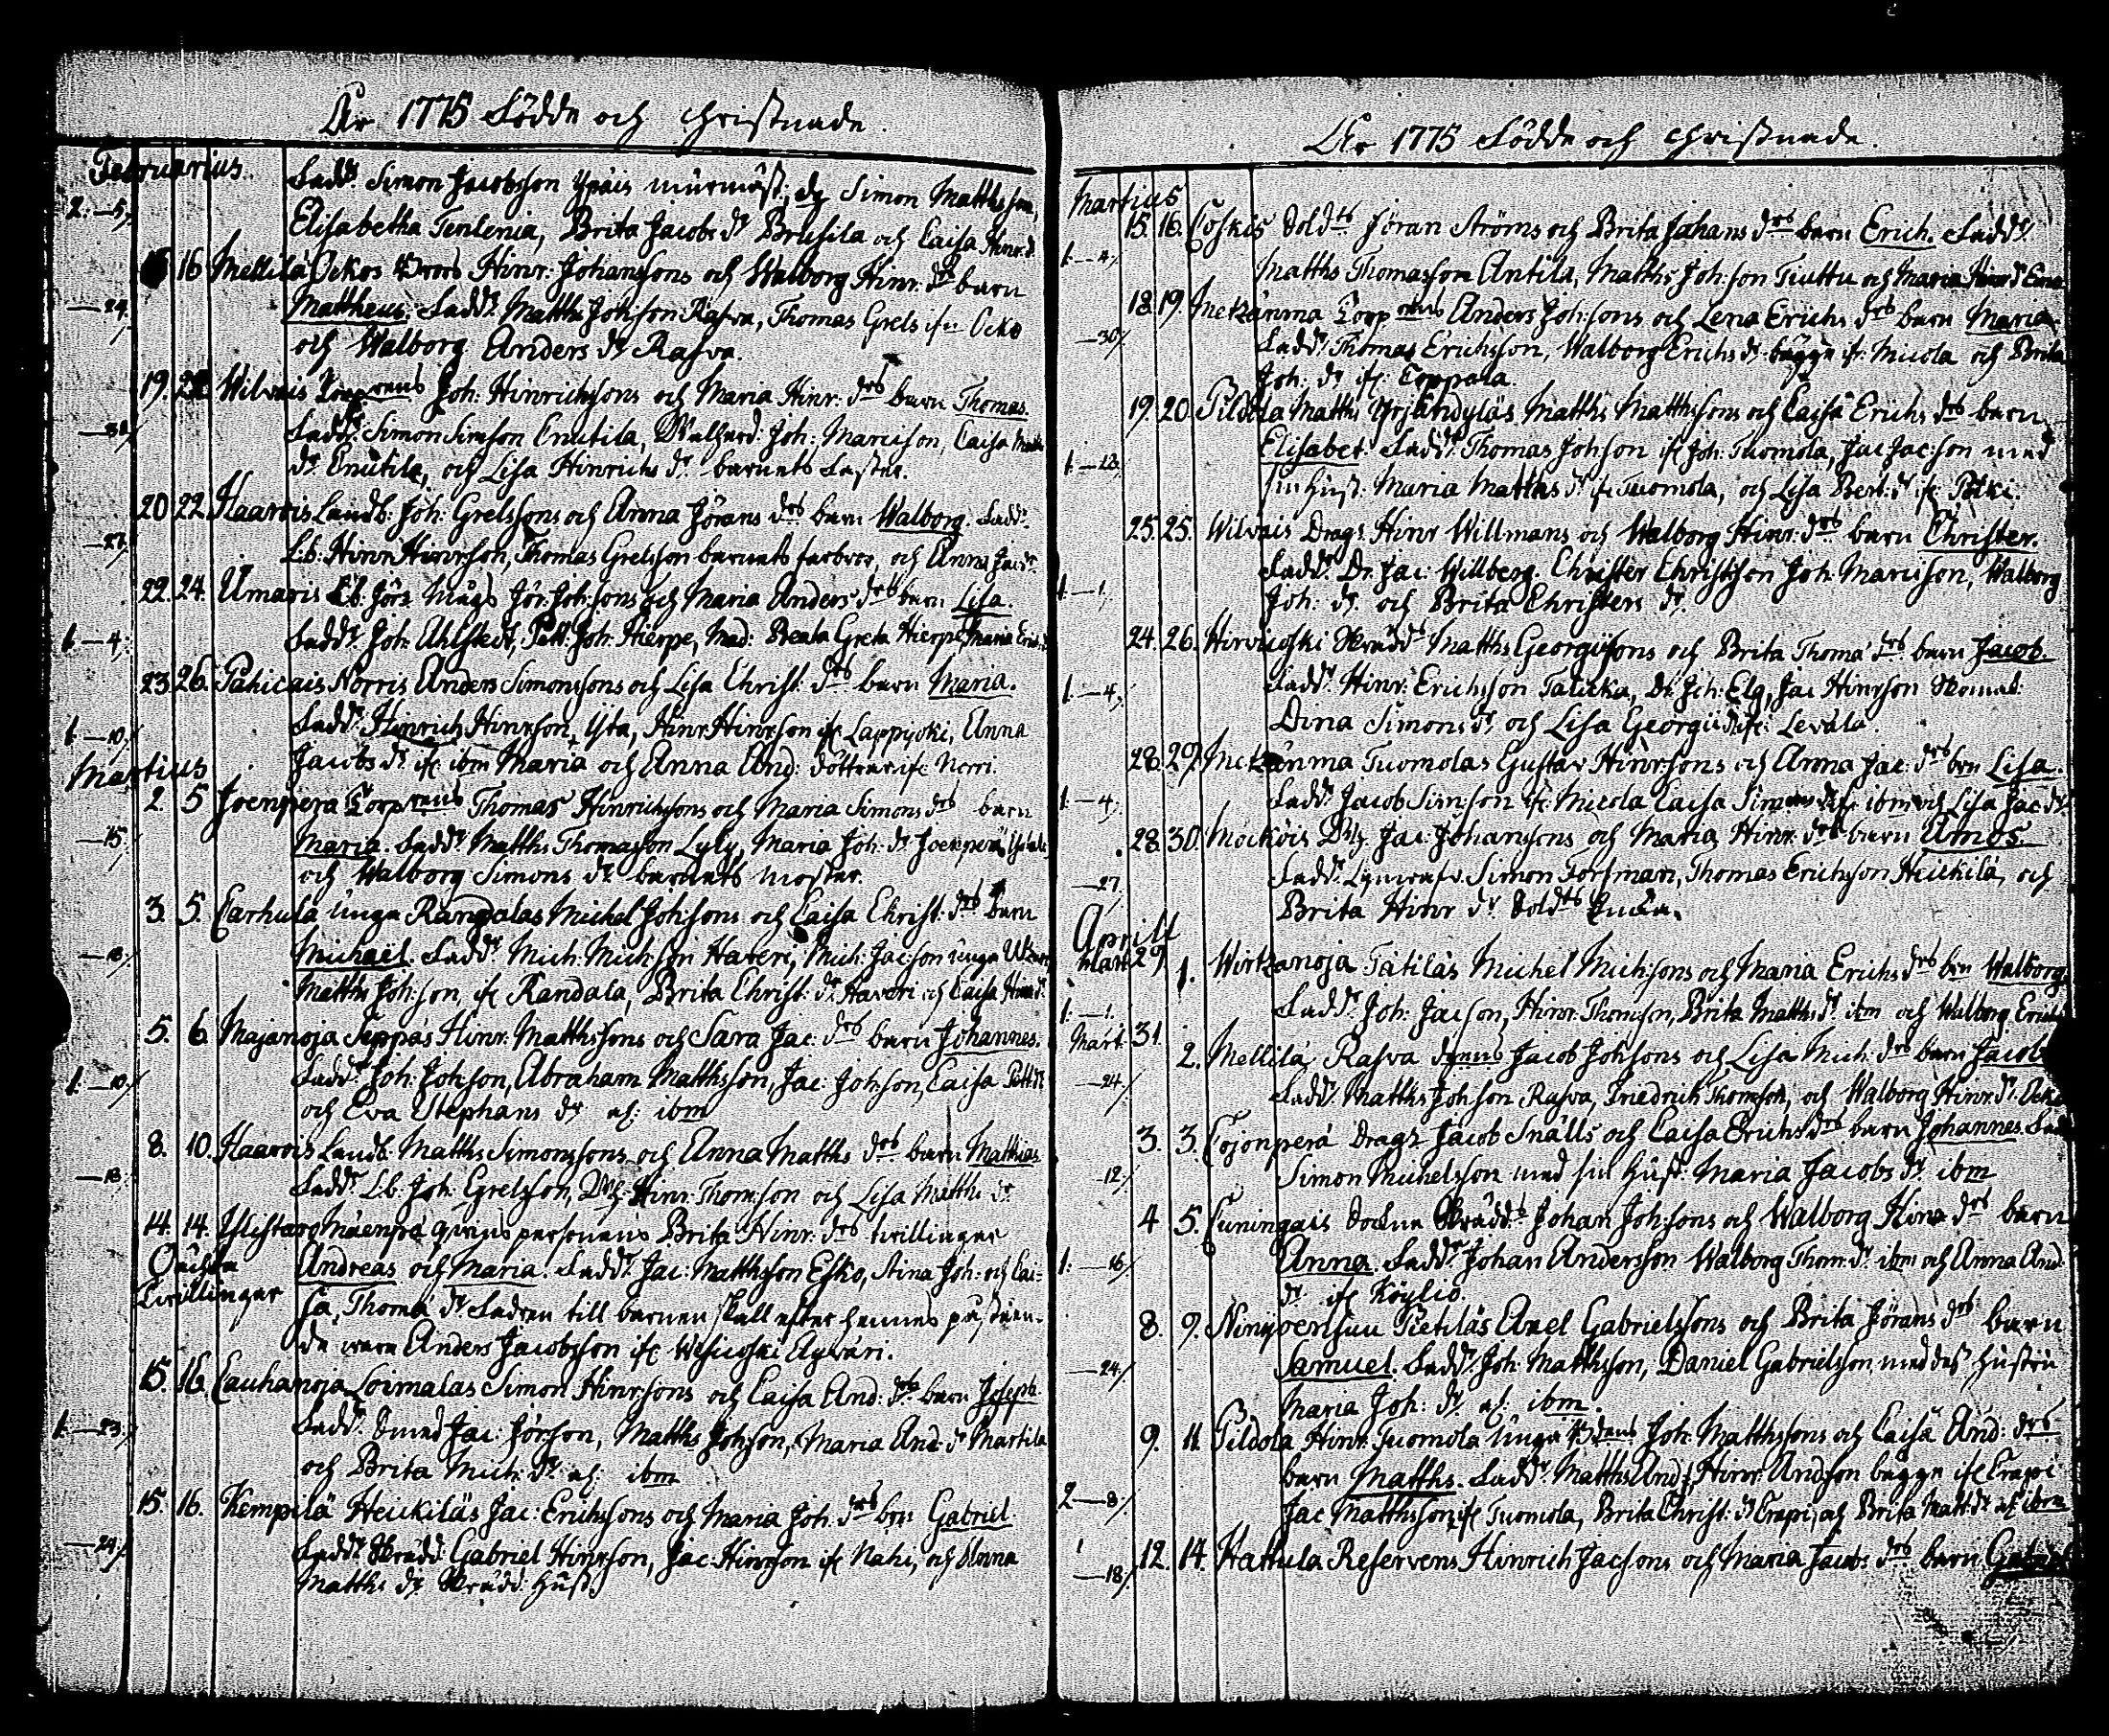 År 1775 Födde och christnade.
Februarius.
2.—5. Fadd: Simon Jacobsson Ypäis Simon Matthsson,
Elisabetha Tenlenia, Brita Jacobs dr Brusila och Caisa Hinr: d:
16 Mellilä Ockos Hinr: Johanssons och Walborg Hinr: drs barn
—24. Mattheus. Fadd: Matths Johsson Rasva, Thomas Grels Ocko
och Walborg Anders dr Rasva.
19. Wilvais Torprens Joh: Hinrichssons och Maria Hinr: drs barn Thomas.
Fadd: Simon Simson Enutila, Joh: Marcison, Caisa
dr Enutila, och Lisa Hinrichs dr barnets faster.
20 22 Haarois Landb: Joh: Grelssons och Anna Jörans drs barn Walborg. Fadd:
—27. L:b: Hinr Hinrsson, Thomas Grelsson barnets farbror, och Anna Jac: dr
22. 24. Umaris Jör: Joh:sons och Maria Anders drs barn Lisa.
1.—4. Fadd: Joh: Ahlstedt, Joh: Hierpe, Mad: Beata Greta Hierpe, Maria
23. 26. Pahicais Norris Anders Simonssons och Lisa Christ: drs barn Maria.
1.—10. Fadd: Hinrich Hinrsson, Ysta, Hinr Hinrsson Lappyoki, Anna
Jacobs dr ibm Maria och Anna And: döttrar Norri.
Martius
2. 5 Joenpera Torprens Thomas Hinrichssons och Maria Simons drs barn
—15. Maria. Fadd: Matths Thomasson Lyly, Maria Joh: dr Joenpera
och Walborg Simons dr barnets moster.
3. 5. Carhula unga Randalas Michel Johssons och Caisa Christ: drs barn
—18. Michaël. Fadd: Mich: Michsson Haveri, Mich: Jacson unga
Matths Joh:son, Randala, Brita Christ: dr Haveri och Caisa
5. 6. Majanoja Seppäs Hinr: Matthssons och Sara Jac: drs barn Johannes.
1.—10. Fadd: Joh: Johsson, Abraham Matthsson, Jac: Johsson, Caisa
och Eva Stephans dr af: ibm
8. 10. Haarois Landb: Matths Simonssons och Anna Matths drs barn Mathias
—18. Fadd: Lb: Joh: Grelsson, Hinr: Thomson och Lisa Matths dr
14. 14. Ylistaro qvinspersonens Brita Hinr: drs tvillingar
Oächta Andreas och Maria. Fadd: Jac: Matthsson Esko, Stina Joh: och Cai-
Tvillingar sa, Thoma dr Fadren till barnen skall efter hennes påståen-
de vara Anders Jacobsson Wesicoski Agväri.
15. 16. Cauhanoja Loimalas Simon Hinrssons och Caisa And: drs barn Joseph.
1.—23. Fadd: Smed Jac: Jörsson, Matths Johsson, Maria And: dr Martila
och Brita Mich: dr af: ibm
15. 16. Kempilä Heickiläs Jac: Erichssons och Maria Joh: drs brn Gabriel.
—24. Fadd: Skrädd: Gabriel Hinrsson, Jac: Hinrsson Nahi, och Anna
Matths dr Skrädd: Hust:
År 1775 Födde och christnade.
Martius
15. 16. Coskis Soldts Jöran Ströms och Brita Johans drs barn Erich. Fadd:
1.—4. Matths Thomasson Antila, Matths Joh:son Tuttu och Maria
18. 19. Metzänma Torprens Anders Joh:sons och Lena Erichs drs barn Maria
—30. Fadd: Thomas Erichsson, Walborg Erichs dr bägge fr: Micola och Brita
Joh: dr Coppala.
19. 20 Pildola Matths Matths Matthssons och Caisa Erichs drs barn
1.—23. Elisabet. Fadd: Thomas Johsson Joh: Tuomola, Jac Jac:son med
sin Hust: Maria Matths dr Tuomola, och Lisa Bert: dr
25. 25. Wilvais Drag: Hinr Willmans och Walborg Hinr: drs barn Christer.
1.—1. Fadd: Dr: Jac: Willberg. Christer Christsson Joh: Marcisson, Walborg
Joh: dr och Brita Christers dr
24. 26. Hirvicoski Skrädds Matths Georgiisons och Brita Thoma drs barn Jacob.
1.—4. Fadd: Hinr: Erichsson Talicka, Dr: Joh: Elg, Jac Hinrson
Dina Simons dr och Lisa Georgii dr Levälä.
28. 29. Metzänma Tuomolas Gustav Hinrssons och Anna Jac: drs brn Lisa.
1.—4. Fadd: Jacob Simson Micola Caisa Simons dr ibm och Lisa Jac: dr
28. 30. Mockois Jac: Johanssons och Maria Hinr: drs barn Amos.
—27. Fadd: Simon Forsman, Thomas Erichsson Heickilä, och
Brita Hinr dr Soldts
Aprill
Mart: 29. 1. Wirtzanoja Tatiläs Michel Michsons och Maria Erichs drs brn Walborg.
1.—1. Fadd: Joh: Jacson, Hinr: Thomson, Brita Matths dr ibm och Walborg Erichs
Mart: 31. 2. Mellilä Rasva Jacob Johssons och Lisa Mich: drs barn Jacob
—24. Fadd: Matths Johsson Rasva, Friedrich Thomson, och Walborg Hinr: dr Ocko
3. 3. Cojonperä Drag: Jacob Snälls och Caisa Erichs drs barn Johannes. Fadd:
—12. Simon Michelsson med sin Hust: Maria Jacobs dr ibm
4 5. Cuningais Sockne Skrädds Johan Joh:sons och Walborg Hinr drs barn
1.—16. Anna. Fadd: Johan Andersson Walborg Thom: dr ibm och Anna And:
dr Köyliö.
8. 9. Ninijoensuu Pietiläs Axel Gabrielssons och Brita Jörans drs barn
—24. Samuel. Fadd: Joh: Matthsson, Daniel Gabrielsson med dess hustru
Maria Joh: dr af: ibm.
9. 11. Pildola Hinr: Tuomola unga Joh: Matthssons och Caisa And: drs
2—8. barn Matths. Fadd: Matths And:s, Hinr: Andsson bägge Crapi
Jac Matthsson, Tuomola, Brita Christ: dr Crapi, och Brita Matt: dr af ibm
—18. 12. 14. Hattula Reservens Hinrich Jacsons och Maria Jacobs drs barn Gabriel